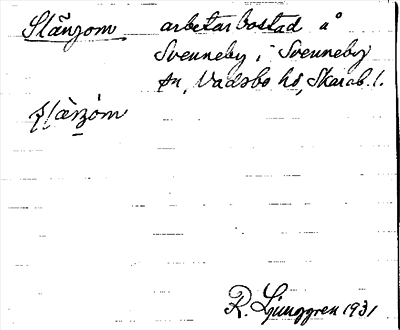 Slänjom arbetarbostad å
Svenneby i Svenneby
sn, Vadsbo hd, Skarab. l.
R. Ljunggren 1931